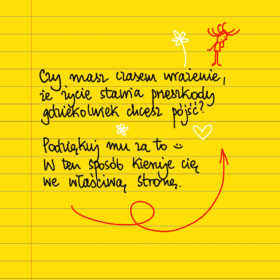 Czy masz czasem wrażenie,
że życie stawia przeszkody
gdziekolwiek chcesz pójść?
Podziękuj mu za to ☺
W ten sposób kieruje cię
we właściwą stronę.